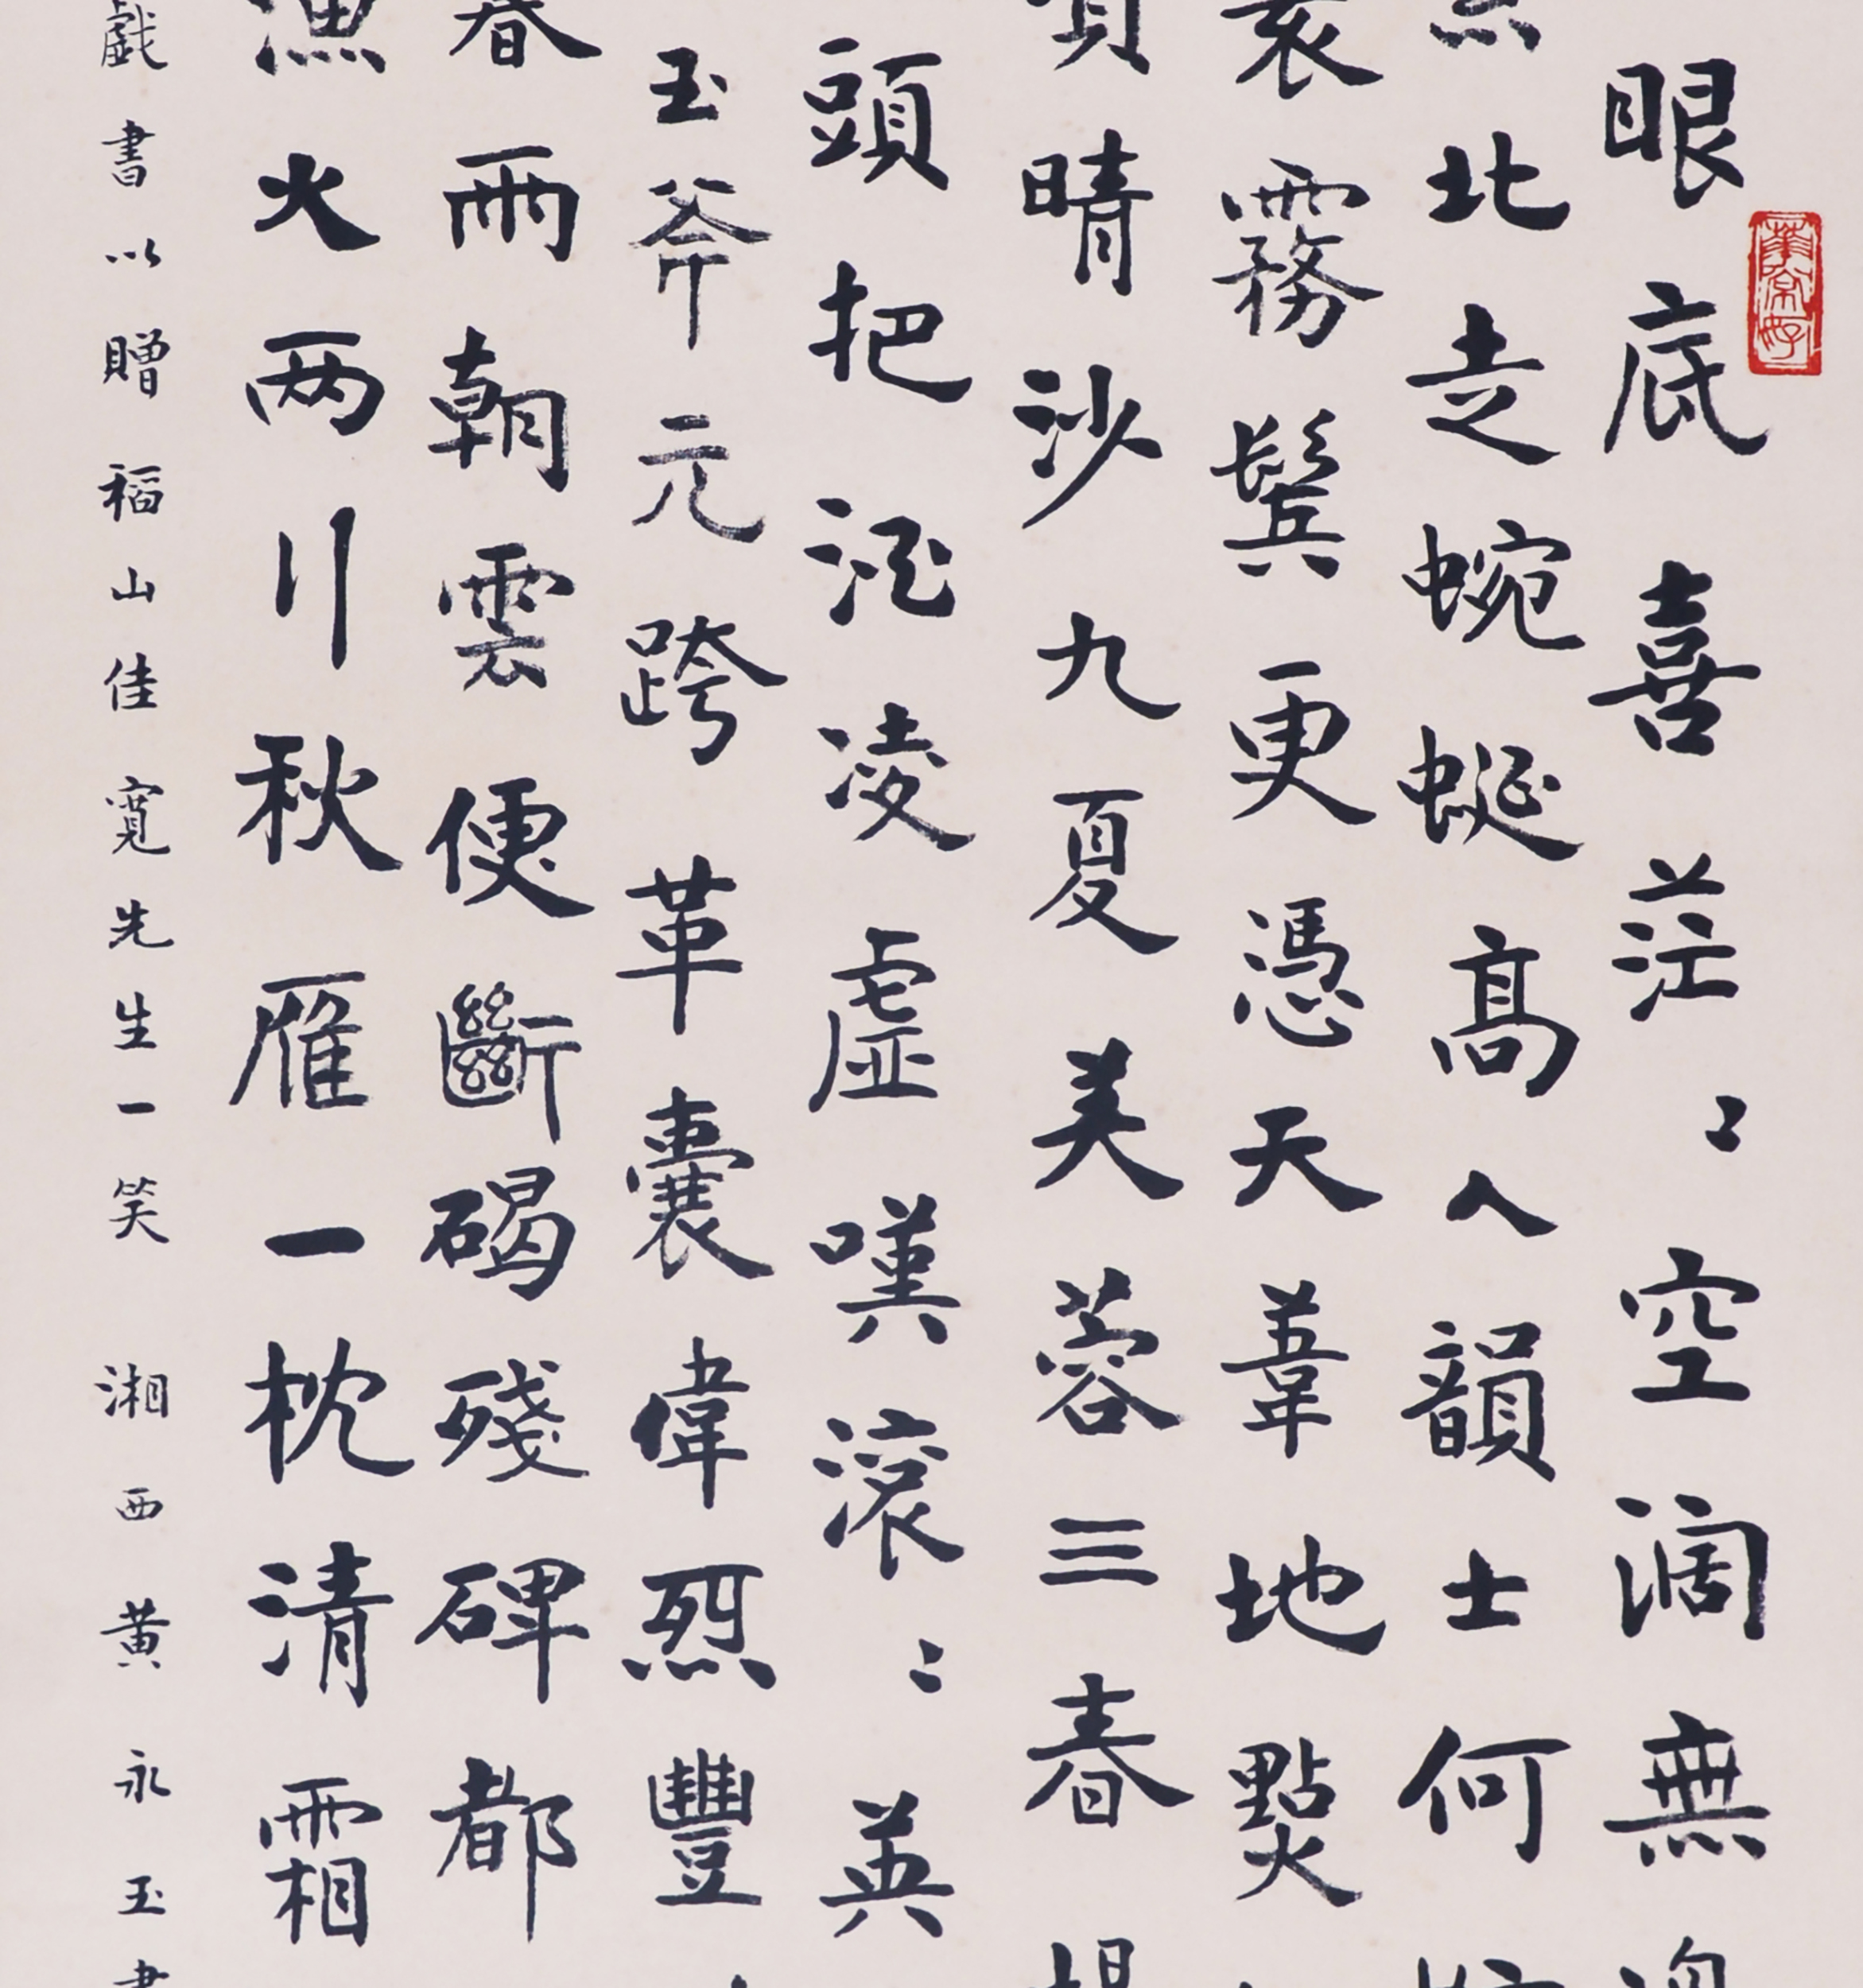 眼底喜茫〻空濶無
北走蜿蜒高人韻士何
裹霧鬢更憑天葦地點
負晴沙九夏芙蓉三春楊
頭把酒凌虛嘆滾〻英
玉斧元跨革囊偉烈豐
暮雨朝雲便斷碣殘碑都
漁火两行秋雁一枕清霜
戲書以贈福山佳寬先生一笑 湘西黄永玉書